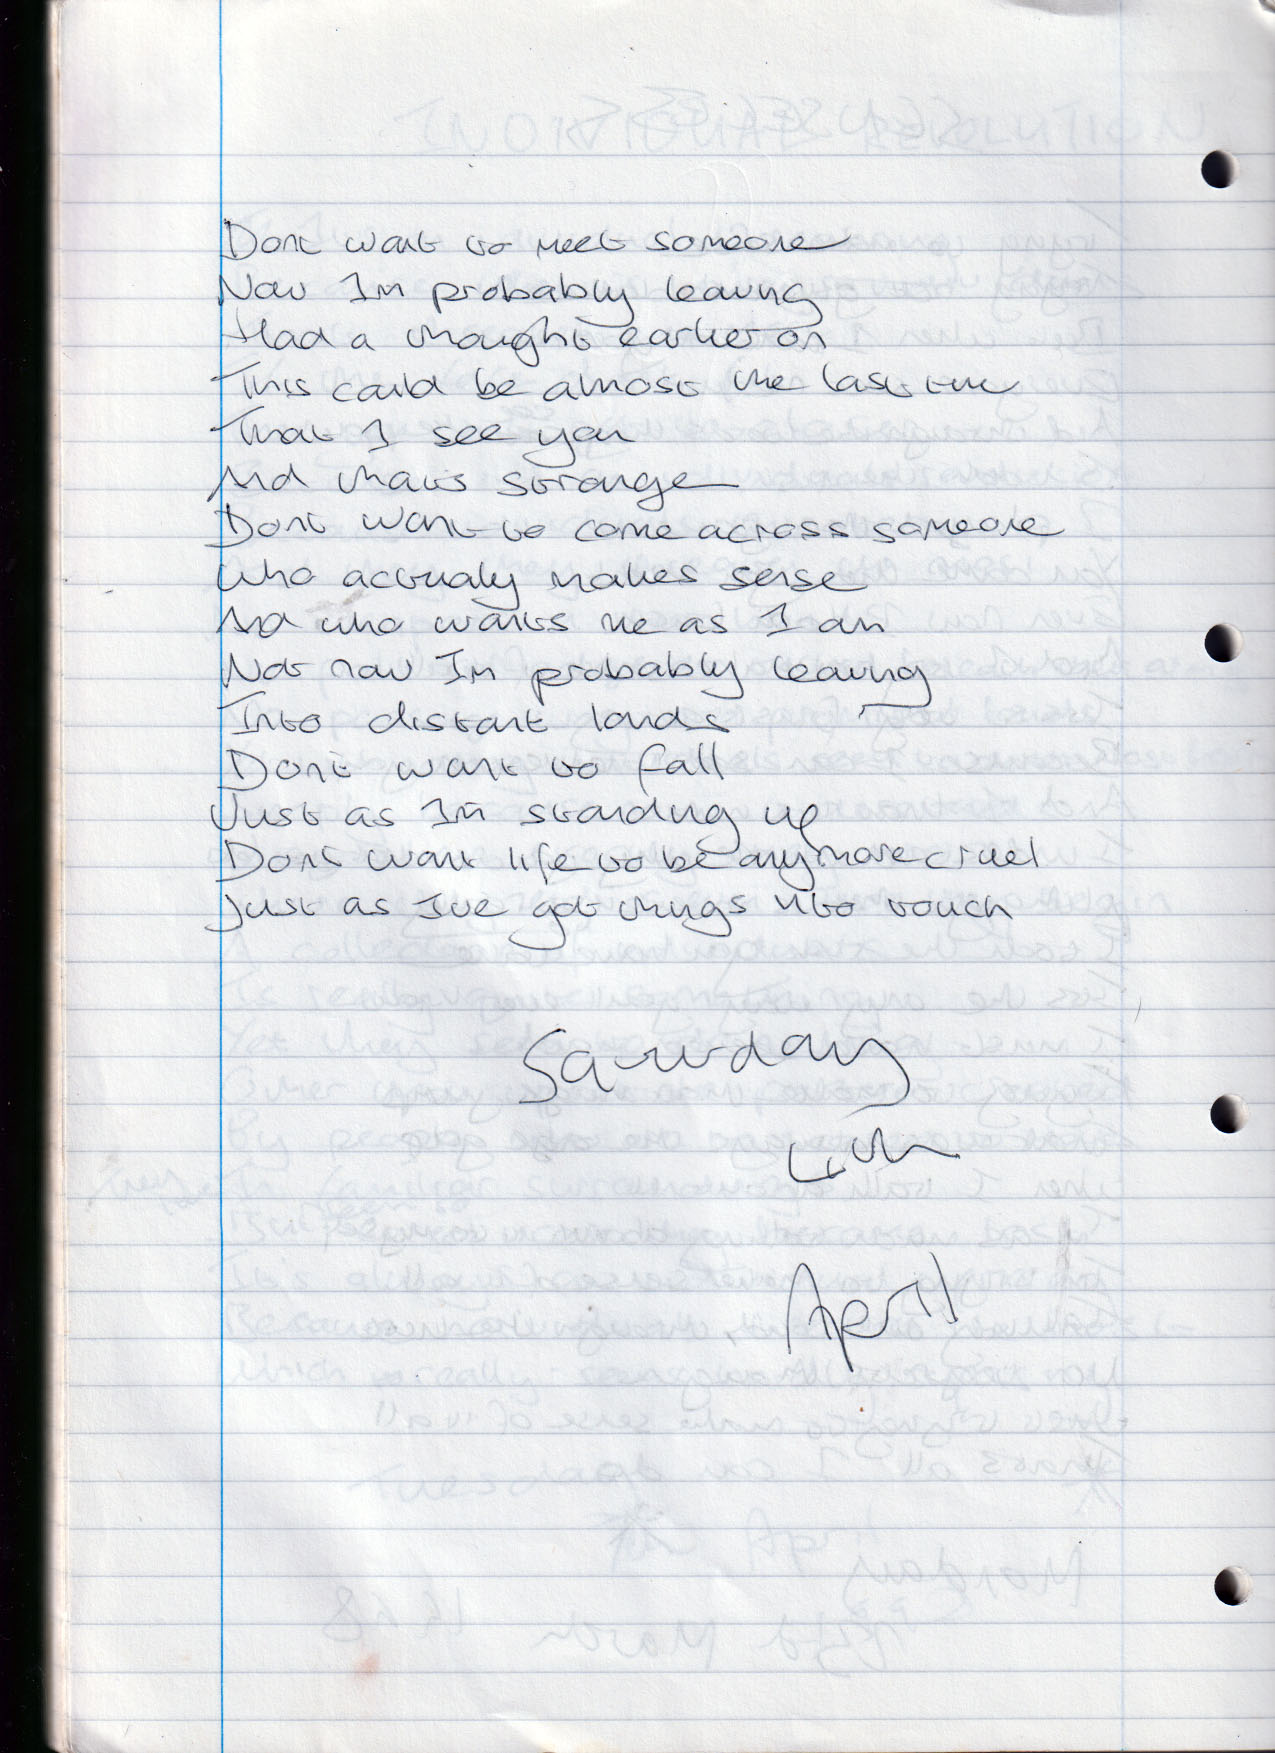 Dont want to meet someone
Now I'm probably leaving
Had a thought earlier on
This could be almost the last time
That I see you
And that's strange
Dont want to come across someone
Who actualy makes sense
And who wants me as I am
Not now I'm probably leaving
Into distant lands
Don't want to fall
Just as I'm standing up
Dont want life to be anymore cruel
Just as I've got things into touch
Saturday
April